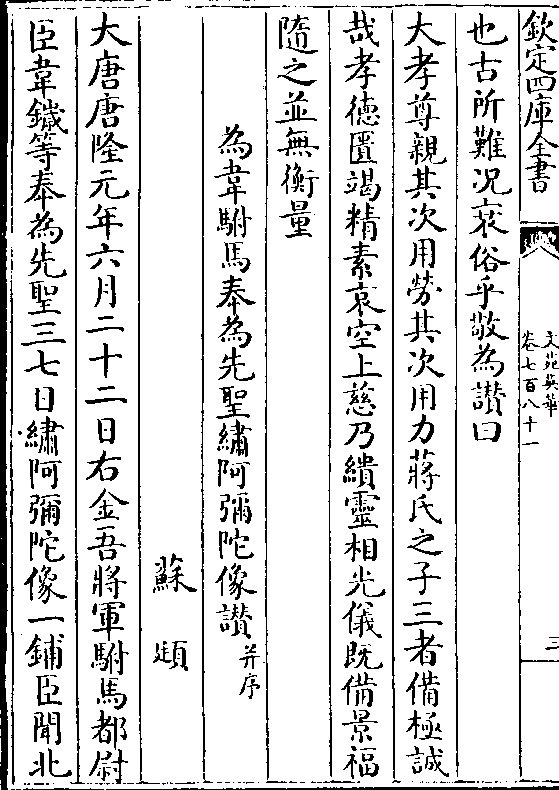 欽定四庫全書
文苑英華
卷七百八十一
三
也古所難况哀俗乎敬為讃曰
大孝尊親其次用勞其次用力蔣氏之子三者備極誠
哉孝德匱竭精素哀空上慈乃繢靈相光儀既備景福
隨之並無衡量
為韋駙馬奉為先聖繡阿彌陀像讃并序
蘇頲
大唐唐隆元年六月二十二日右金吾將軍駙馬都尉
臣韋鐵等奉為先聖三七日繡阿彌陀像一鋪臣聞北